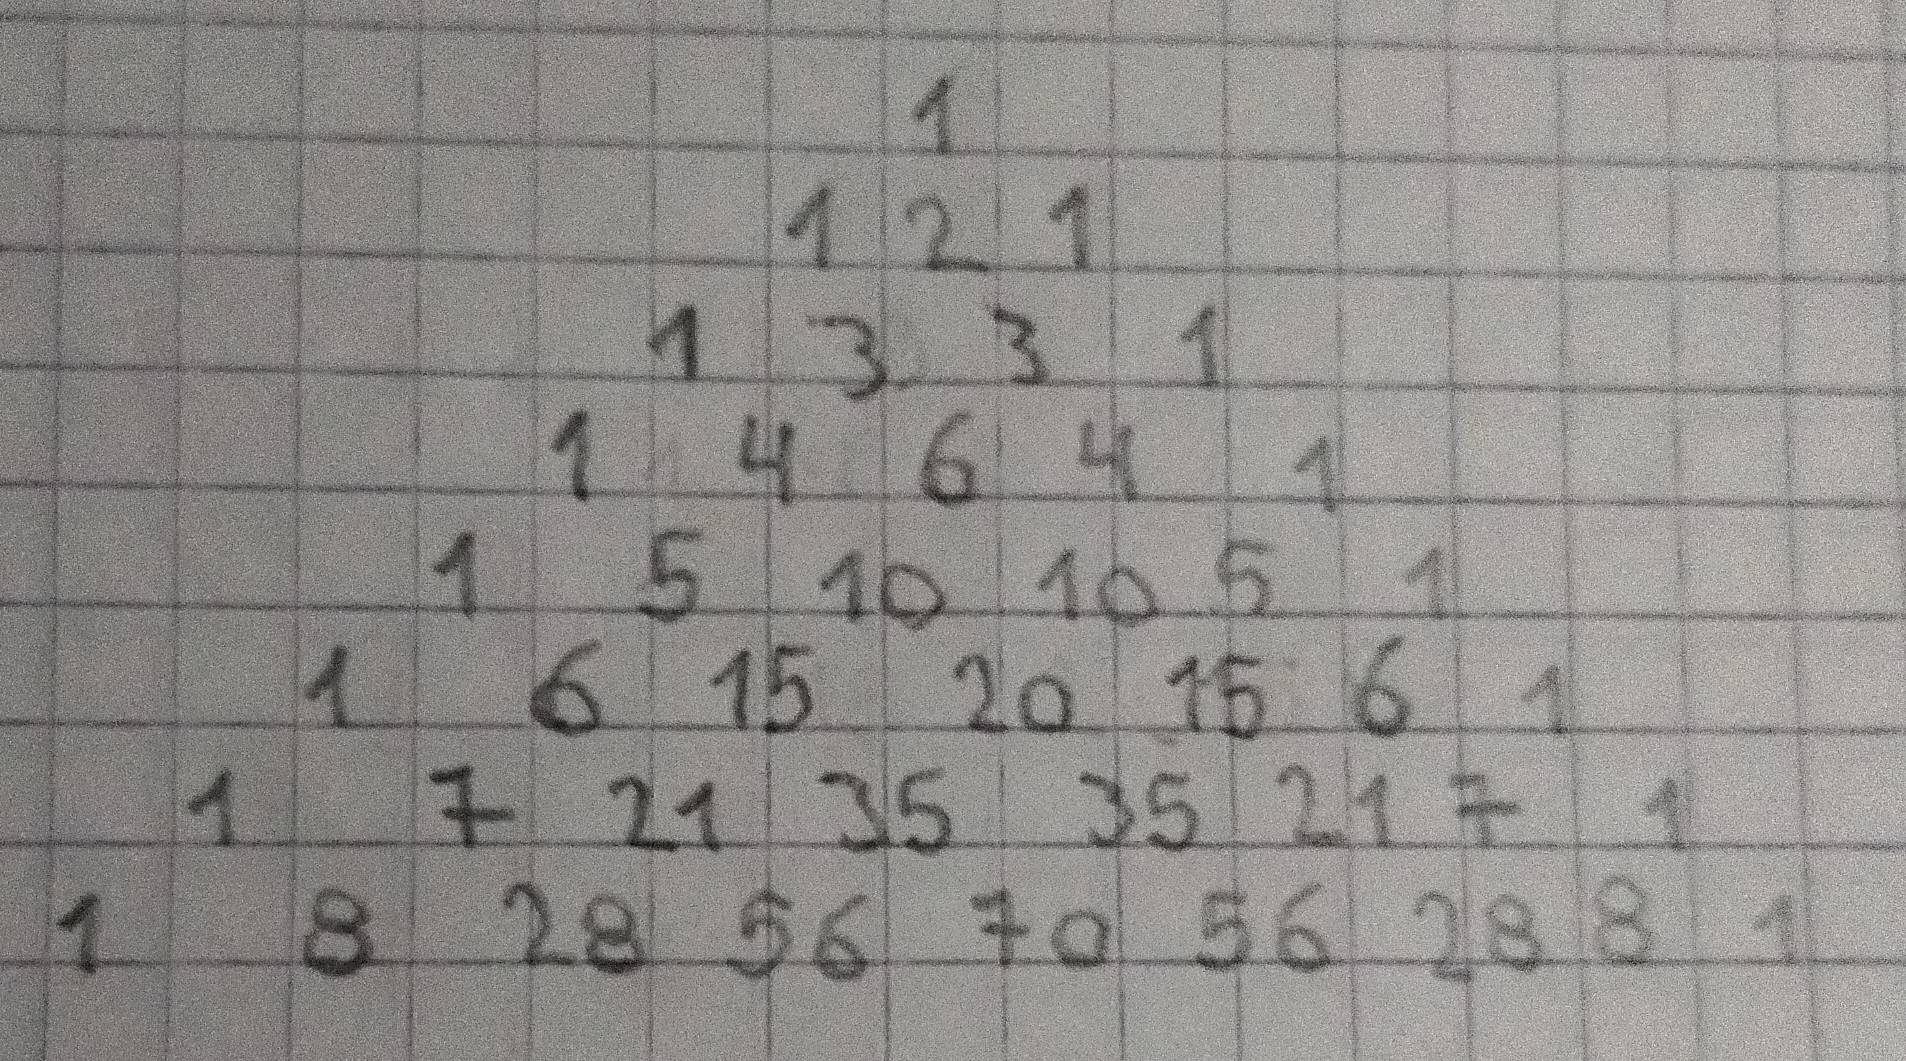 1
1 2 1
1 3 3 1
1 4 6 4 1
1 5 10 10 5 1
1 6 15 20 15 6 1
1 7 21 35 35 21 7 1
1 8 28 56 70 56 28 8 1